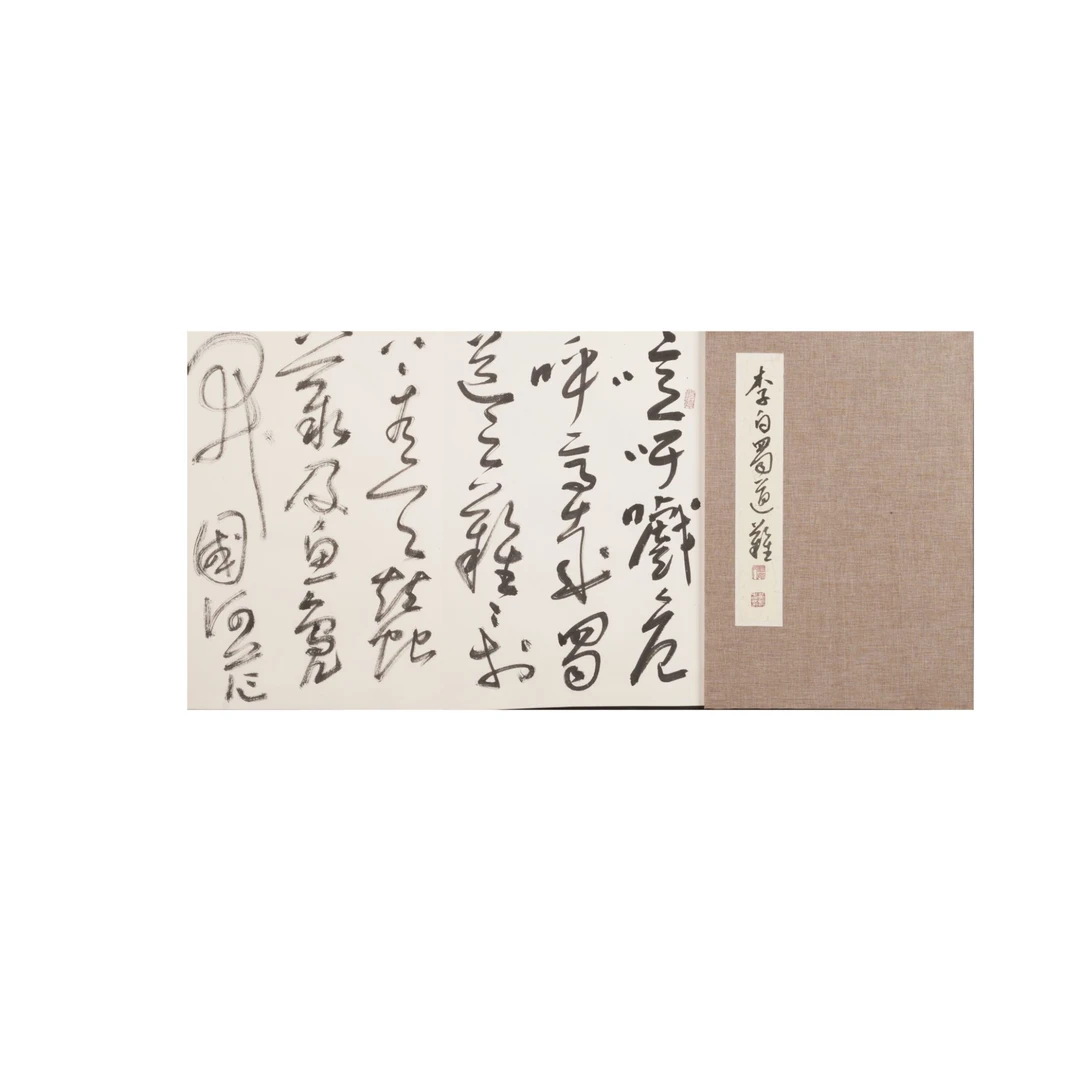 李白蜀道難
噫吁嚱危
呼高哉蜀
道之難〻於
上青天蠶
叢及魚鳧
開國何茫